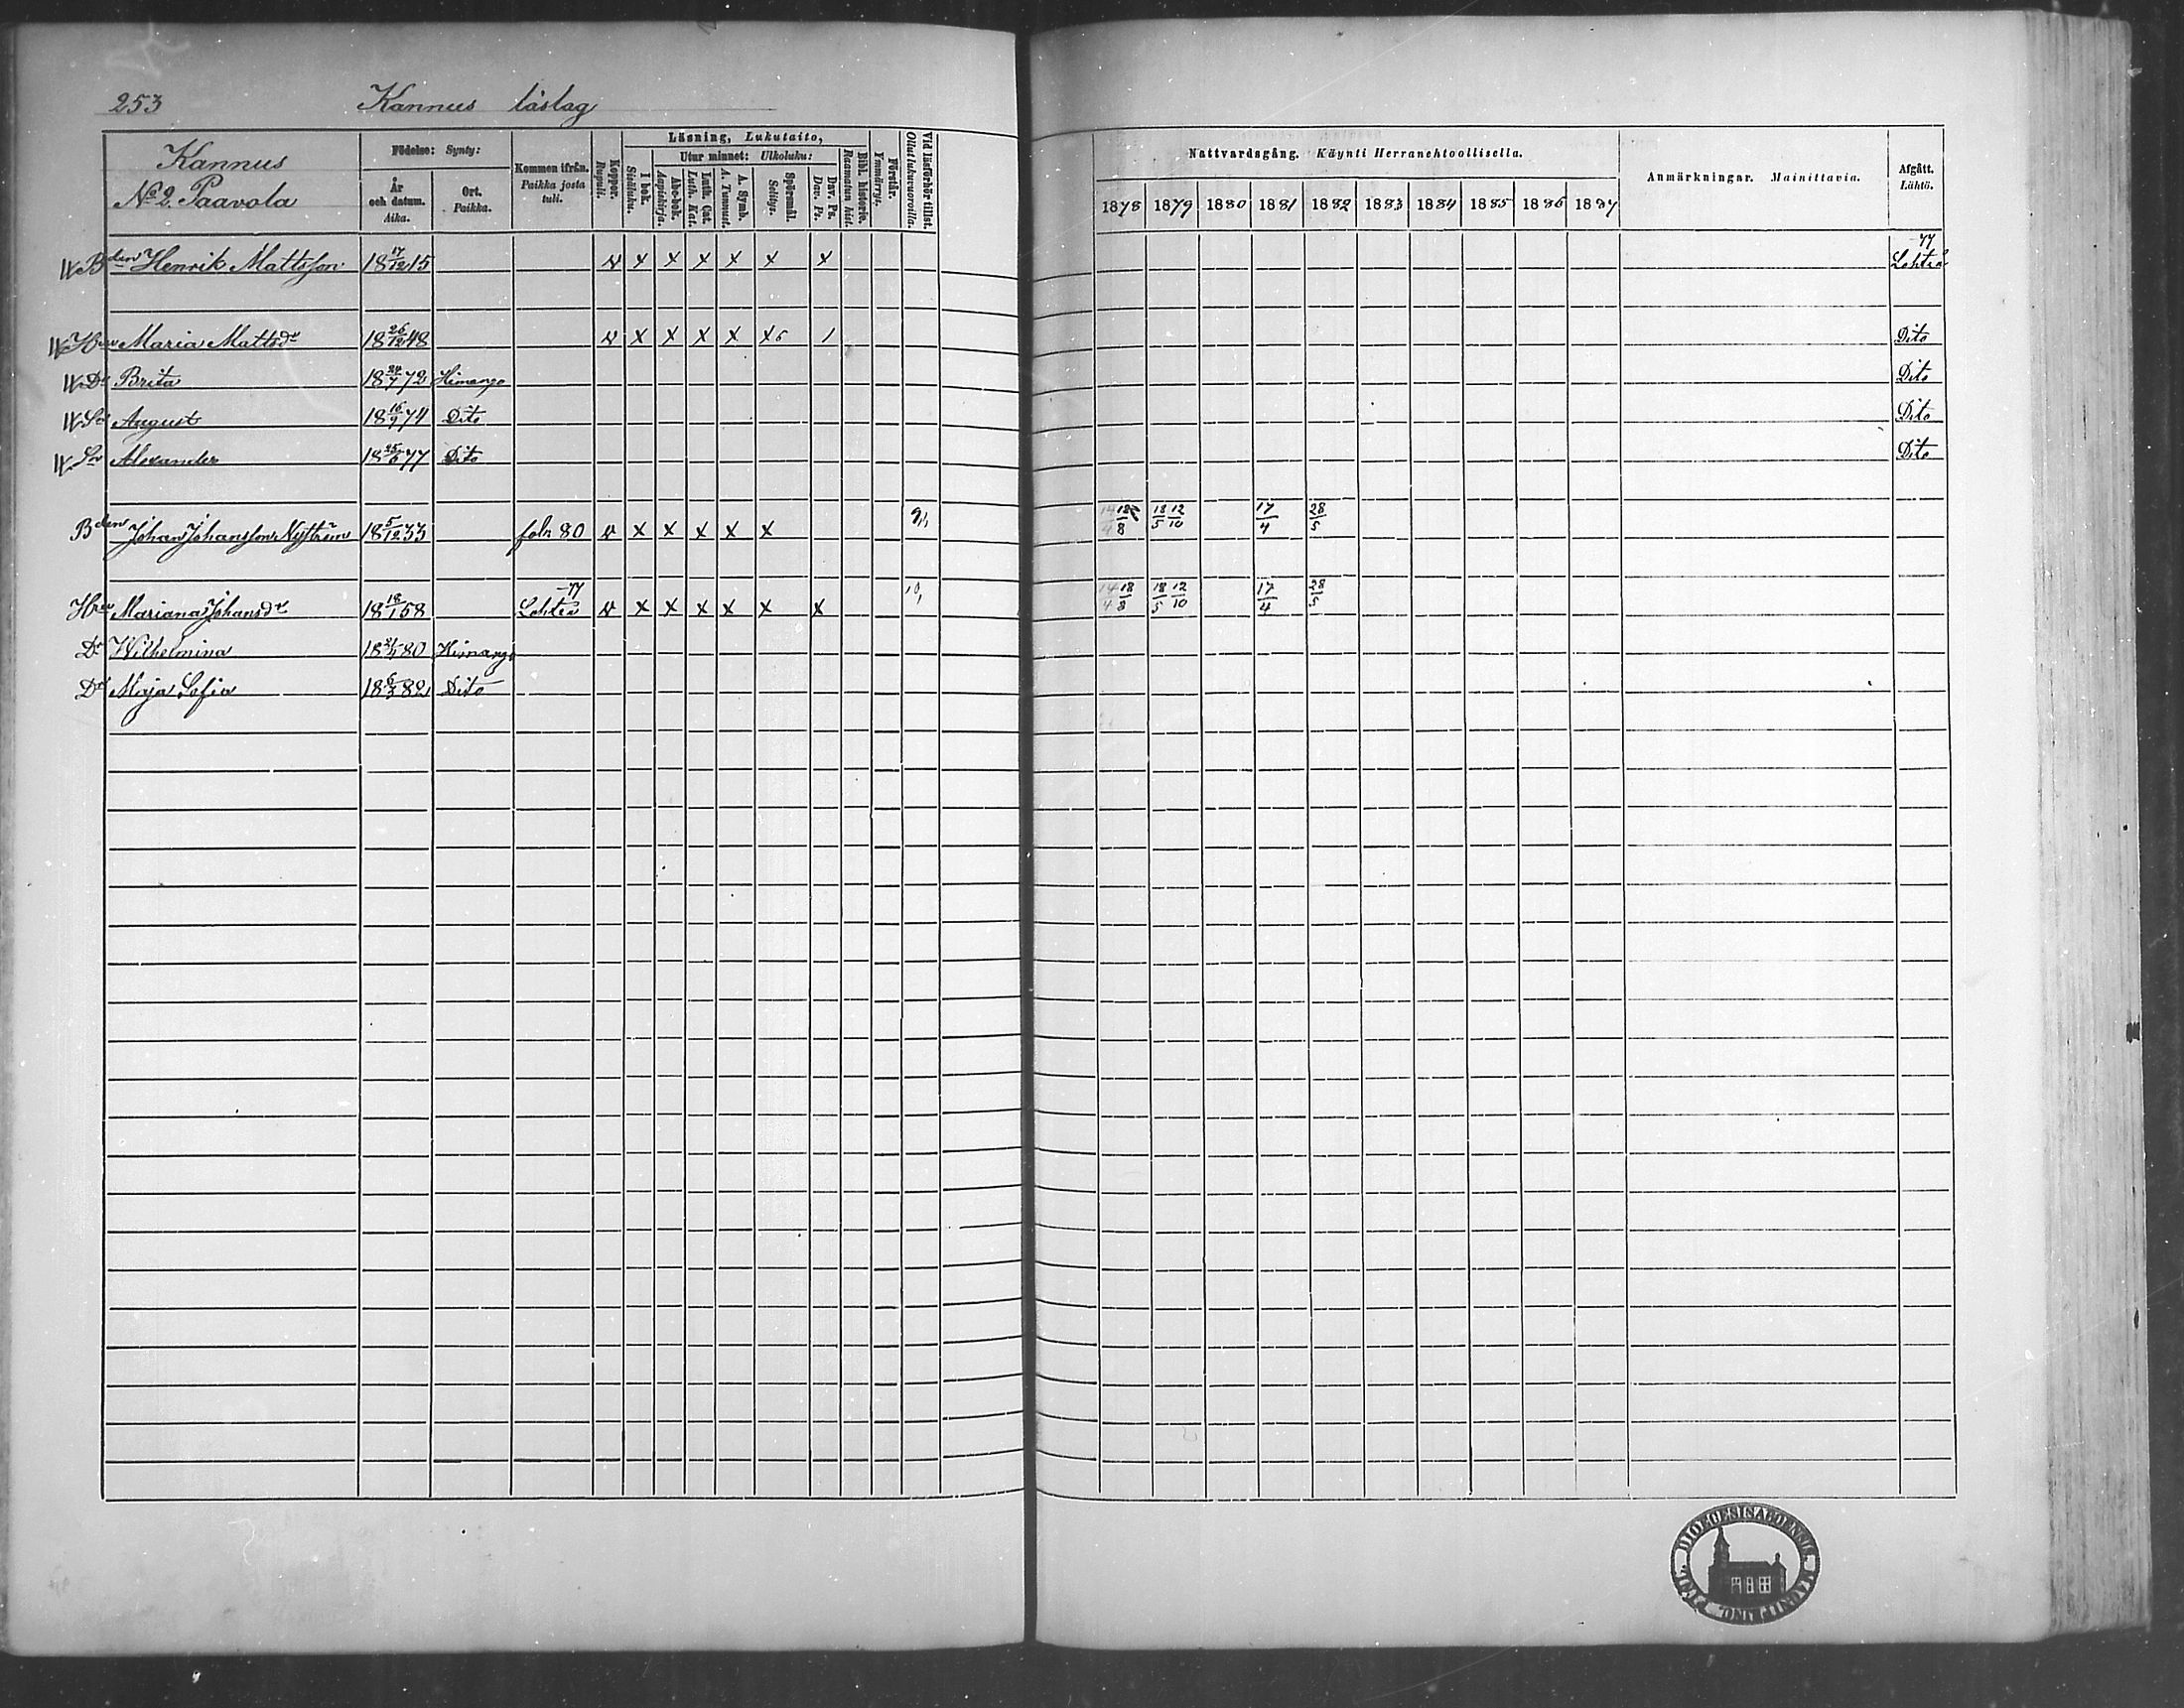 253 Kannus läslag
Kannus
No 2. Paavola
Födelse: Synty:
År och datum. Aika.
Ort. Paikka.
Kommen ifrån. Paikka josta tuli.
Koppor. Rupuli.
Läsning, Lukutaito,
I bok. Sisäluku.
Utur minnet: Ulkoluku:
Abc-bok. Aapiskirja.
Luth. Cat. Luth. Kat.
A. Symb. A. Tunnust.
Spörsmål. Selitys.
Dav. Ps. Dav. Ps.
Bibl. historie. Raamatun hist.
Förstår. Ymmärrys.
Vid läsförhör tillst. Ollut lukuvuoroilla.
Nattvardsgång. Käynti Herranehtoollisella.
1878 1879 1880 1881 1882 1883 1884 1885 1886 1887
Anmärkningar. Mainittavia.
Afgått. Lähtö.
Bden Henrik Mattsson 18 17/12 15 x x x x x x 77 Lohteå
Hru Maria Mattsdr 18 26/12 48 x x x x x6 1 Dito
Dr Brita 18 24/7 72 Himango Dito
Sn August 18 16/9 74 Dito Dito
Sn Alexander 18 25/6 77 Dito Dito
Bden Johan Johansson Nyström 18 5/12 33 foln 80 x x x x x 18/8 18/5 12/10 17/4 28/5
Hru Mariana Johansdr 18 18/1 58 77 Lohteå x x x x x x 14/4 18/8 18/5 12/10 17/4 28/5
Dr Wilhelmina 80 Himango
Dr Maja Sofia 18 6/3 82 Dito